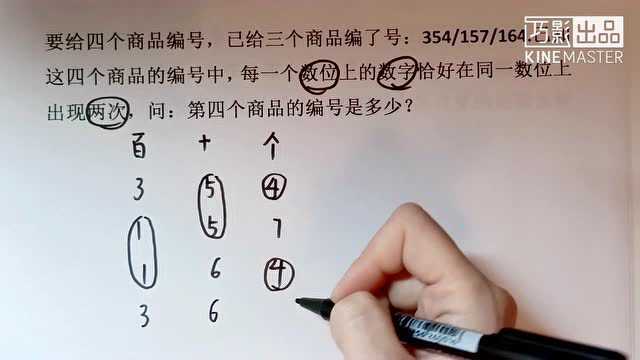 巧影出品
KINEMASTER
要给四个商品编号，已给三个商品编了号：354/157/164
这四个商品的编号中，每一个数位上的数字恰好在同一数位上
出现两次，问：第四个商品的编号是多少？
百 十 个
3 5 4
1 5 7
1 6 4
3 6